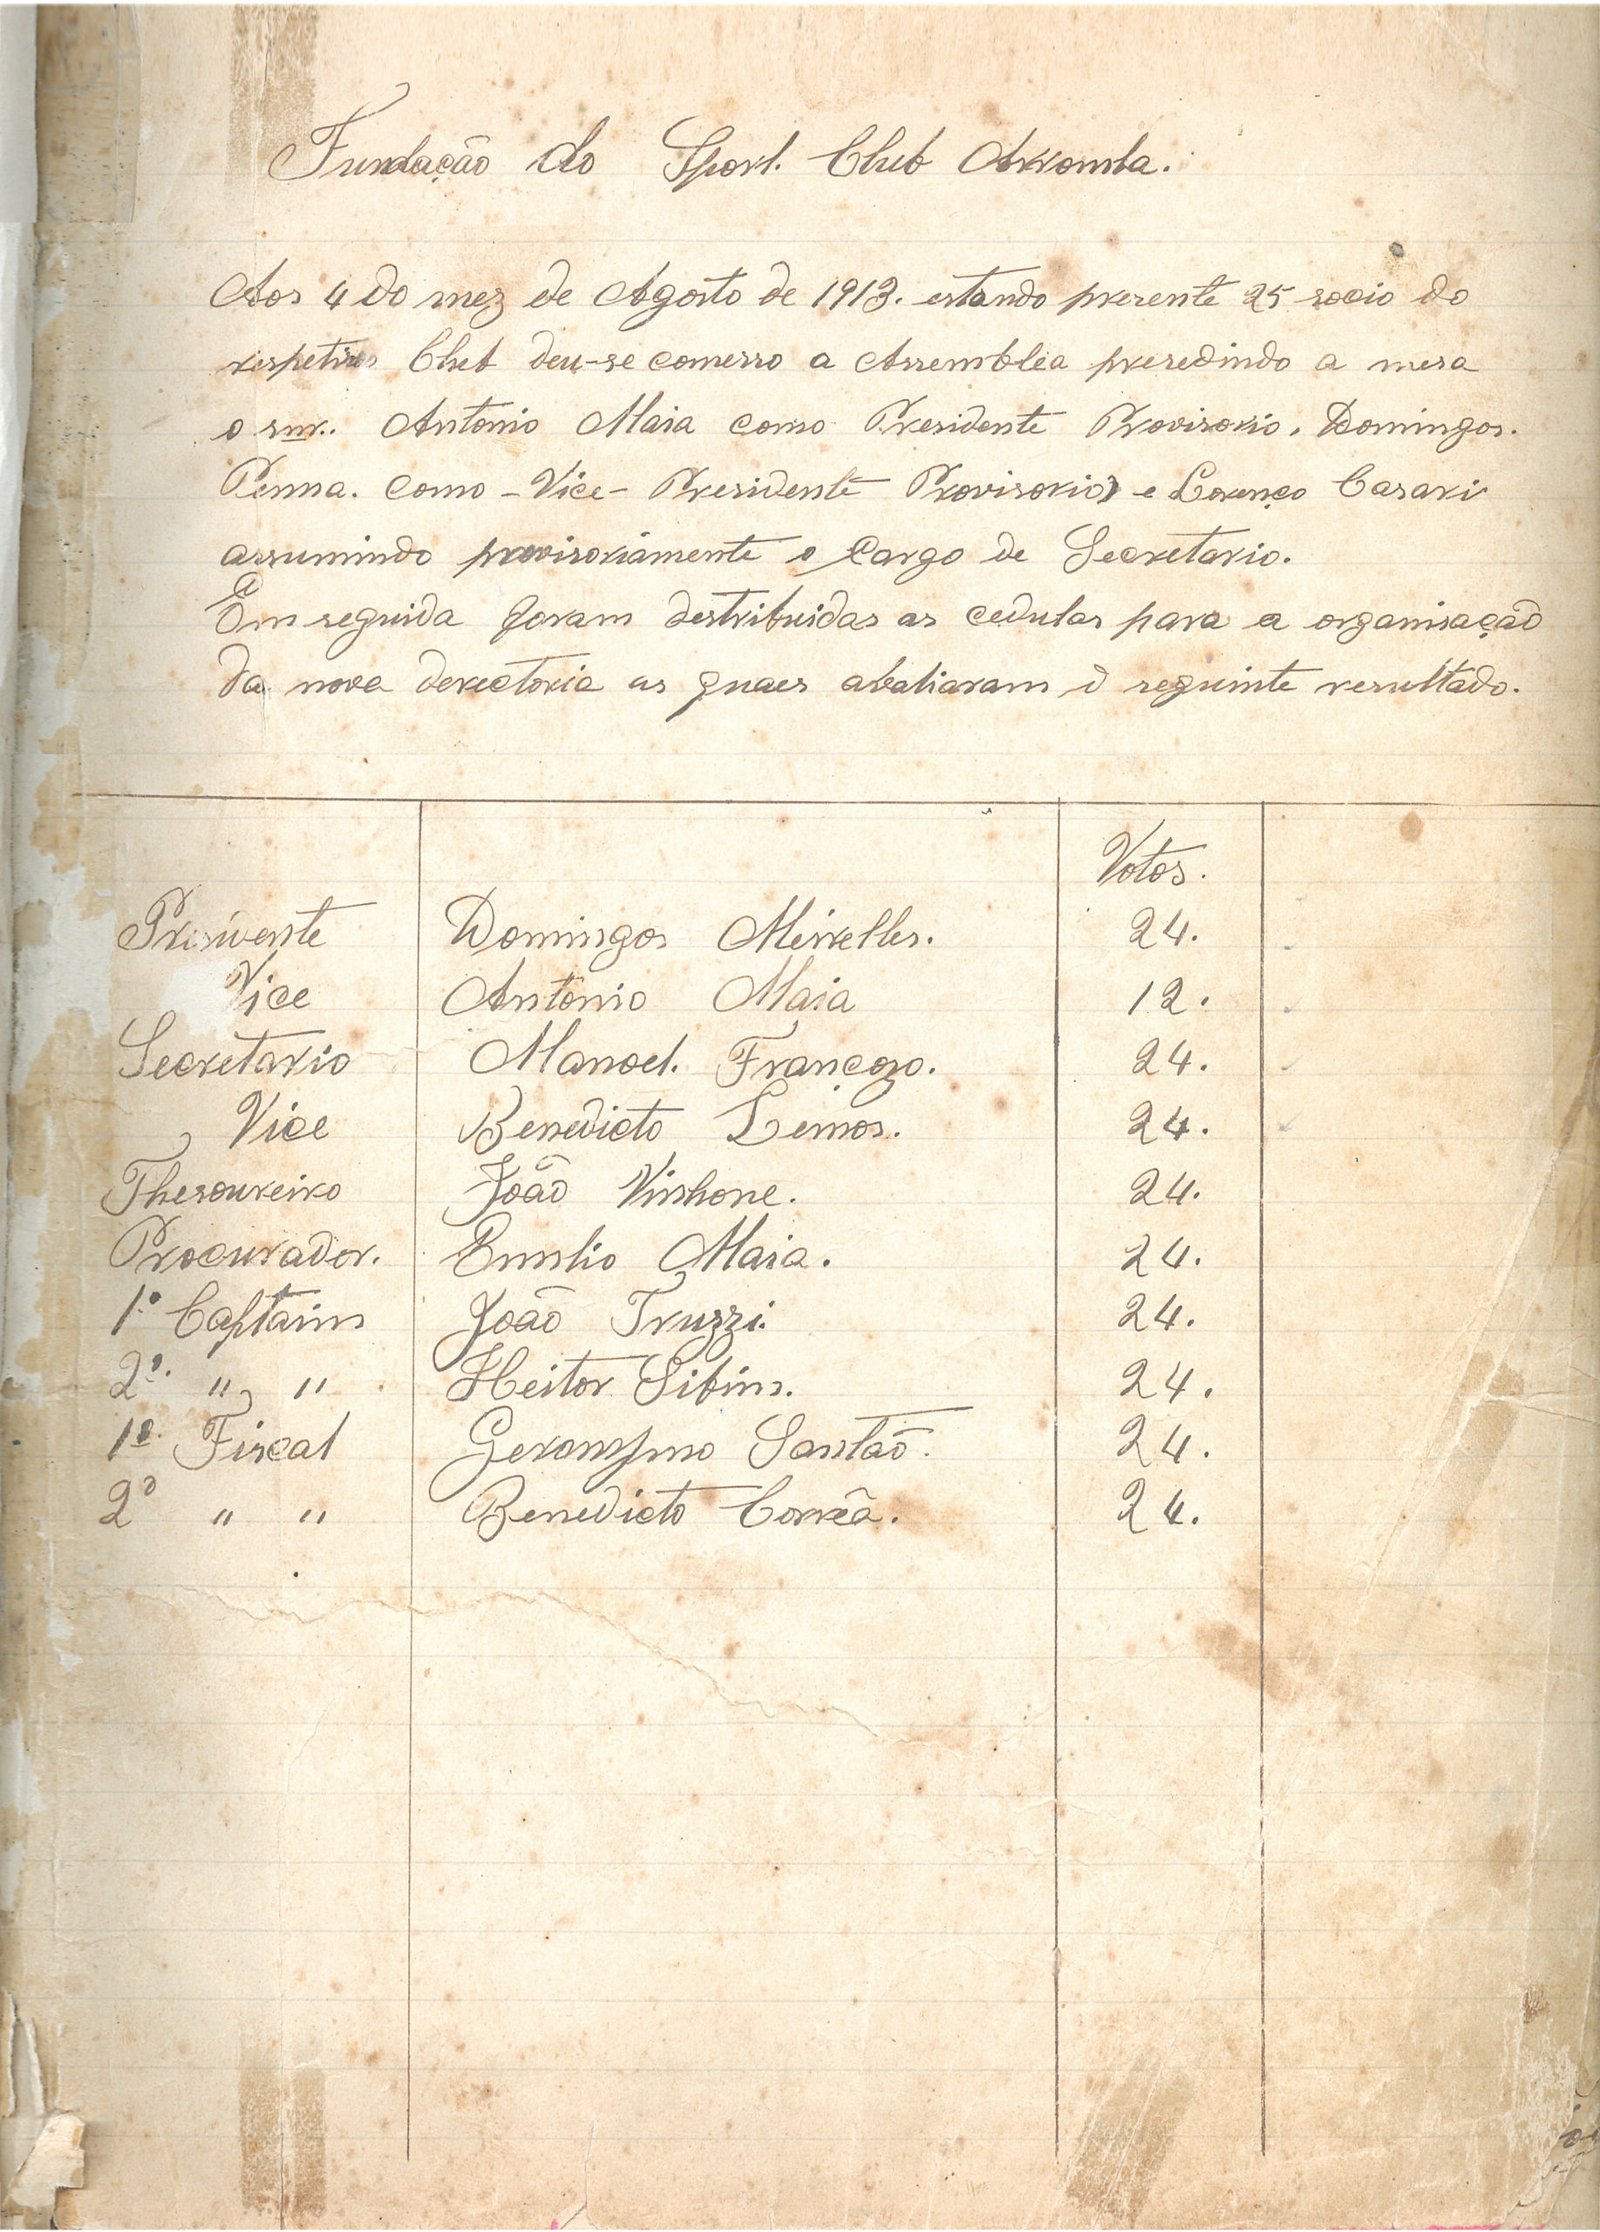 Fundação do Sport. Club Arromba.
Aos 4 do mez de Agosto de 1913. estando presente 25 socio do
respetivo Club deu-se comesso a Assemblea presedindo a mesa
o snr. Antonio Maia como Presidente Provisorio. Domingos.
Penna. como - Vice - Presidente Provisorio e Lorenço Casari
assumindo provisoriamente o Cargo de Secretario.
Em seguida foram destribuidas as cedulas para a organisação
da nova derectoria as quaes abaliaram o seguinte resultado.
Votos.
Presidente Domingos Meirelles. 24.
Vice Antonio Maia 12.
Secretario Manoel. Françozo. 24.
Vice Benedicto Lemos. 24.
Thesoureiro João 24.
Procurador. Emilio Maia. 24.
1º Captain João Truzzi. 24.
2º. " " Heitor Sibim. 24.
1º. Fiscal Geronymo Santão. 24.
2º " " Benedicto Corrêa. 24.